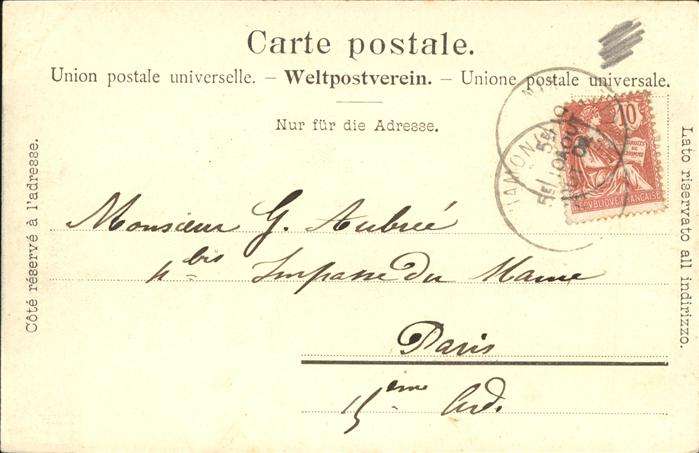 Carte postale.
Union postale universelle. – Weltpostverein. – Unione postale universale.
Nur für die Adresse.
Côté réservé à l'adresse.
Lato riservato all indirizzo.
10
REPUBLIQUE FRANÇAISE
10 AOUT
04
Monsieur G. Aubréé
bis Impasse du Maine
Paris
15ème Ard.